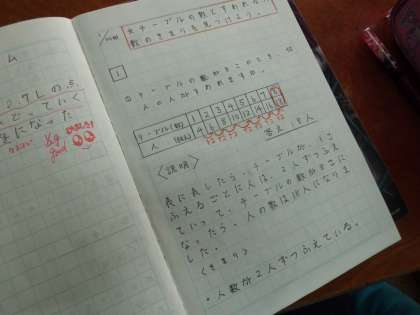 ム
2.7Lの
でっていく
生になった
good
大テーブルの数とすわれる人
数のきまりを見つけよう。
1
テーブルの数が8このとき、何
人の人がすわれますか。
テーブル(数) 1 2 3 4 5 6 7 8
人 4 6 8 10 12 14 16 18
答え 18人
〈説明〉
表に表したら、テーブルが、1こ
ふえるごとに人は、2人ずつふえ
ていって、テーブルの数が8こに
なったら、人の数は18人になりま
した。
〈きまり〉
・人数が2人ずつふえている。